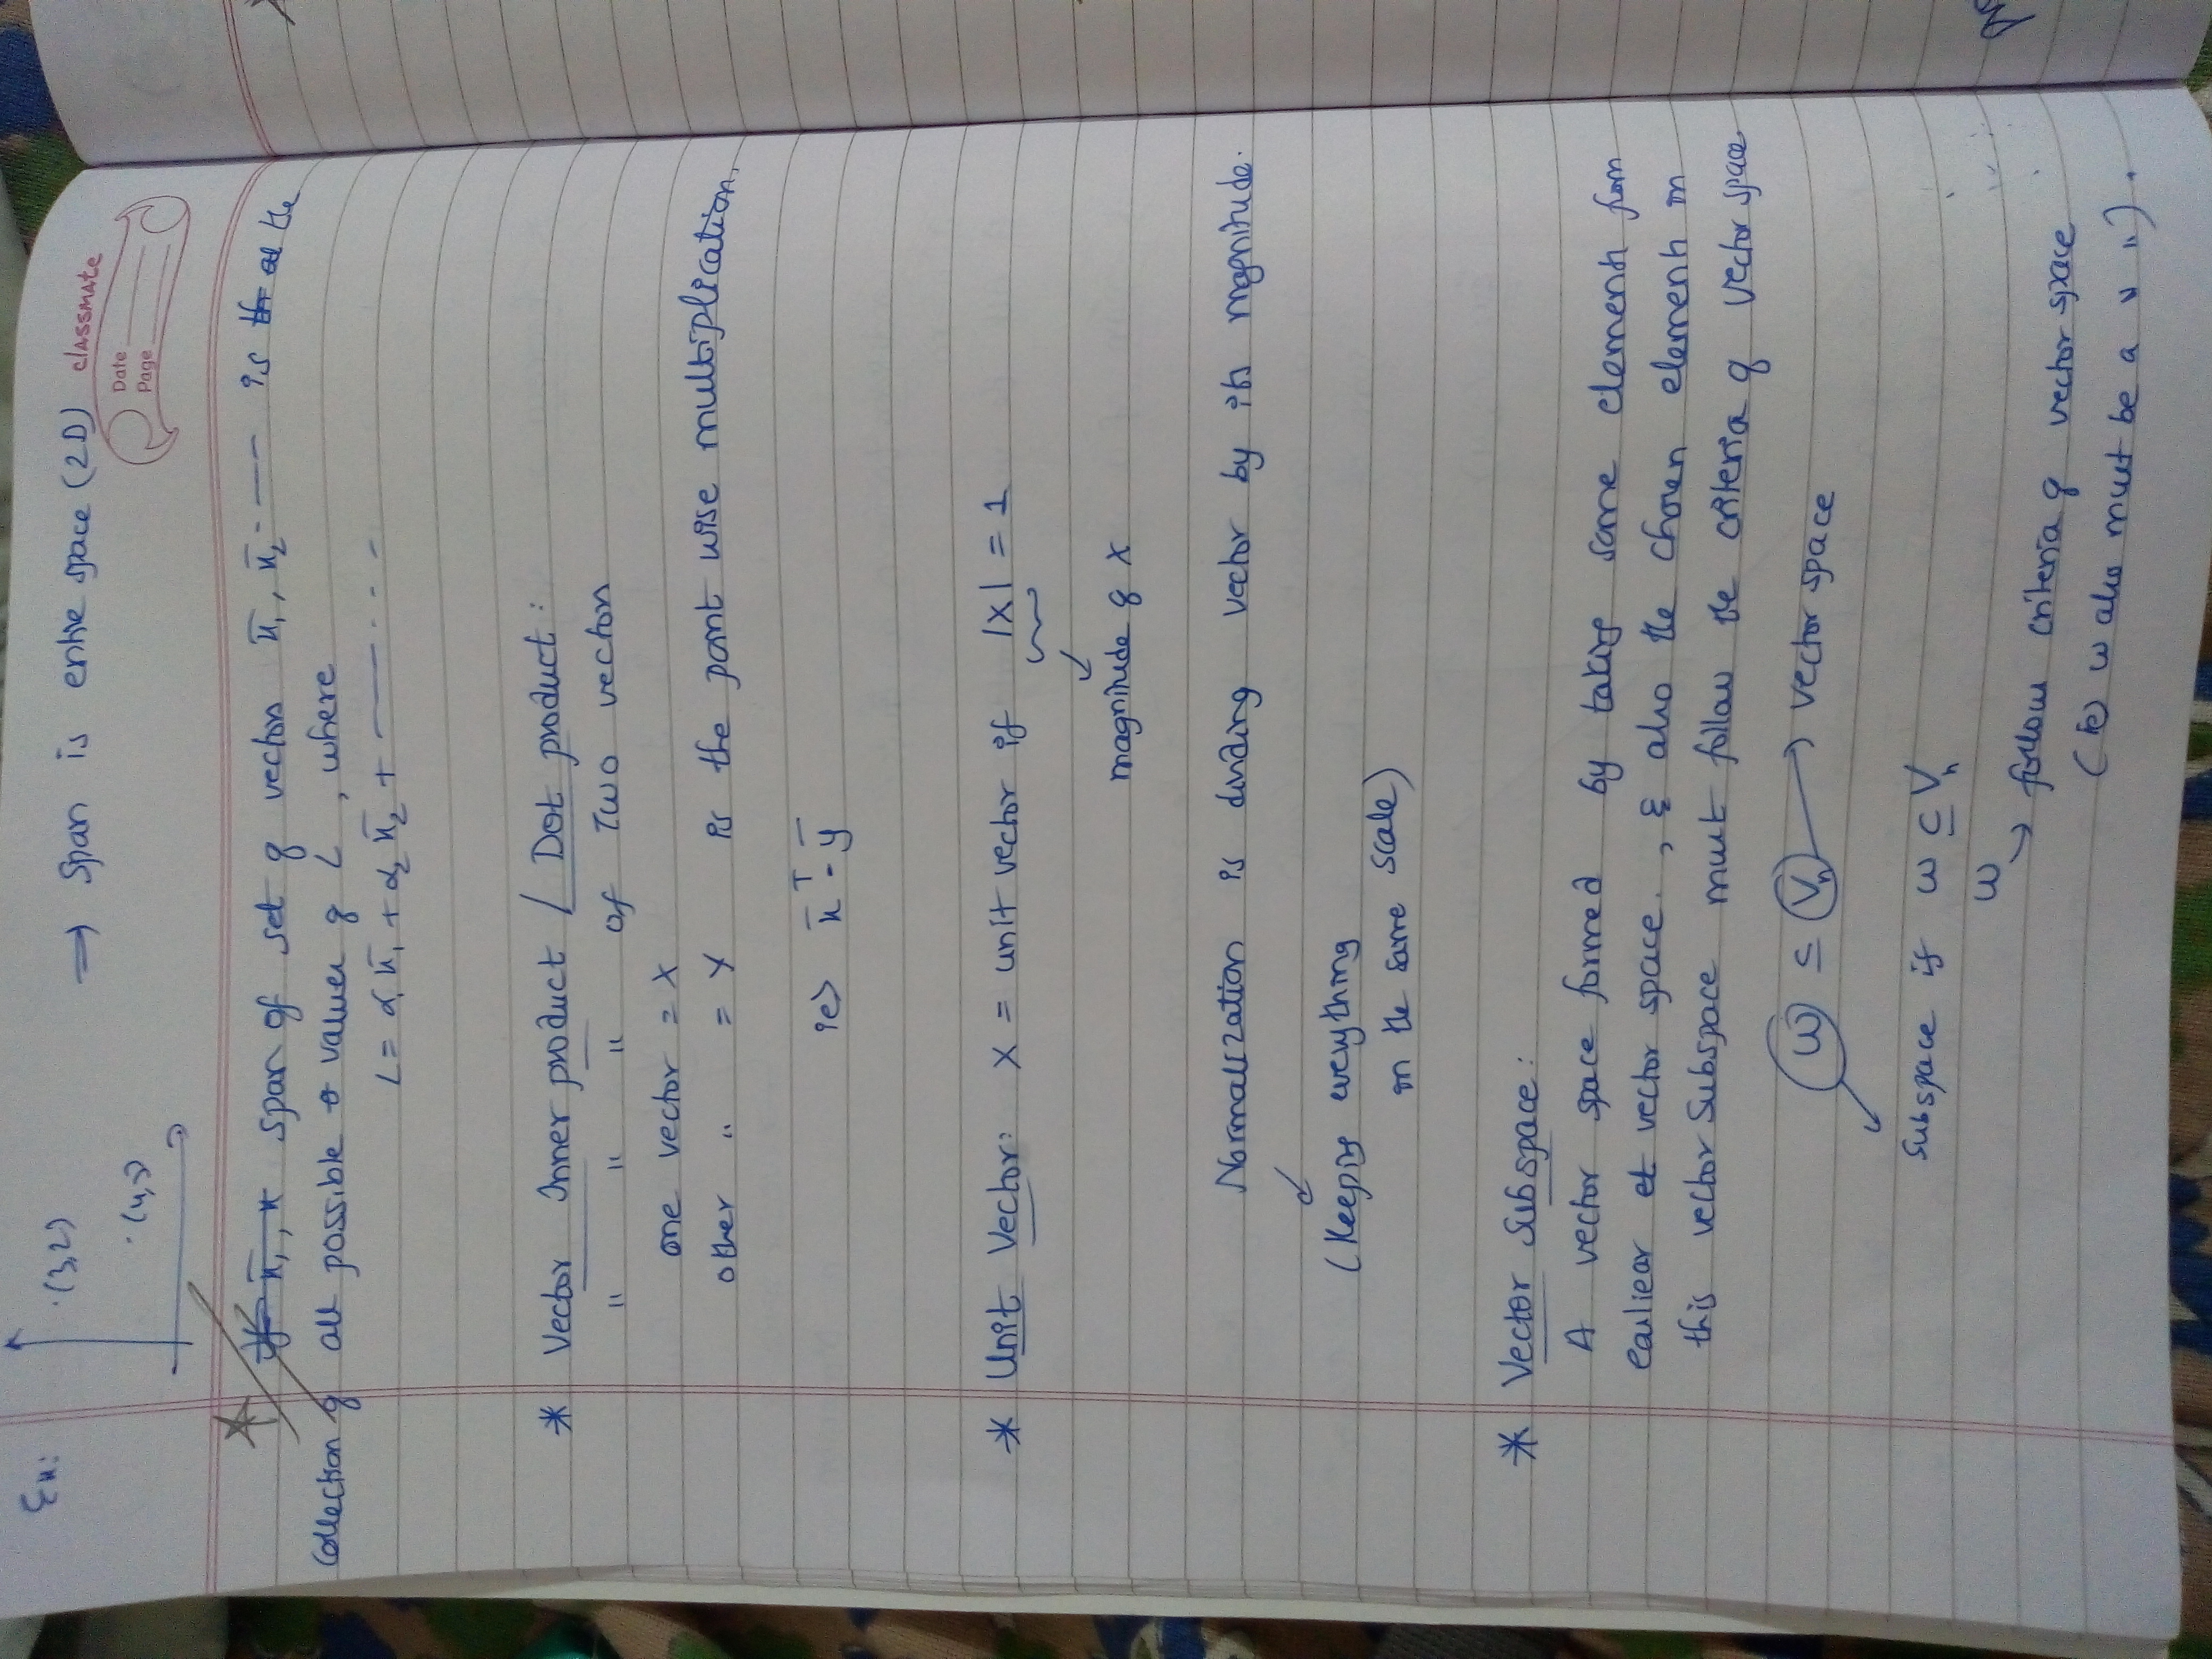 Ex:
.(3,2)
.(4,1)
⇒ Span is entire space (2D)
classmate
Date
Page
span of set of vectors x̄₁, x̄₂ ---- is the
collection of all possible values of L, where
L = α₁x̄₁ + α₂x̄₂ + ——- . . -
* Vector Inner product / Dot product :
" " " of Two vectors
one vector = X
other " = Y is the point wise multiplication.
ie> x̄ᵀ - ȳ
* Unit Vector: X = unit vector if |X| = 1
magnitude of X
Normalization is dividing vector by its magnitude.
(Keeping everything
in the same scale)
* Vector Subspace :
A vector space formed by taking some elements from
earliear vector space. , & also the chosen elements in
this vector subspace must follow the criteria of vector space
W ⊆ Vₙ → vector space
Subspace if W ⊆ Vₙ
W
→ follow criteria of vector space
(ie) W also must be a " ").